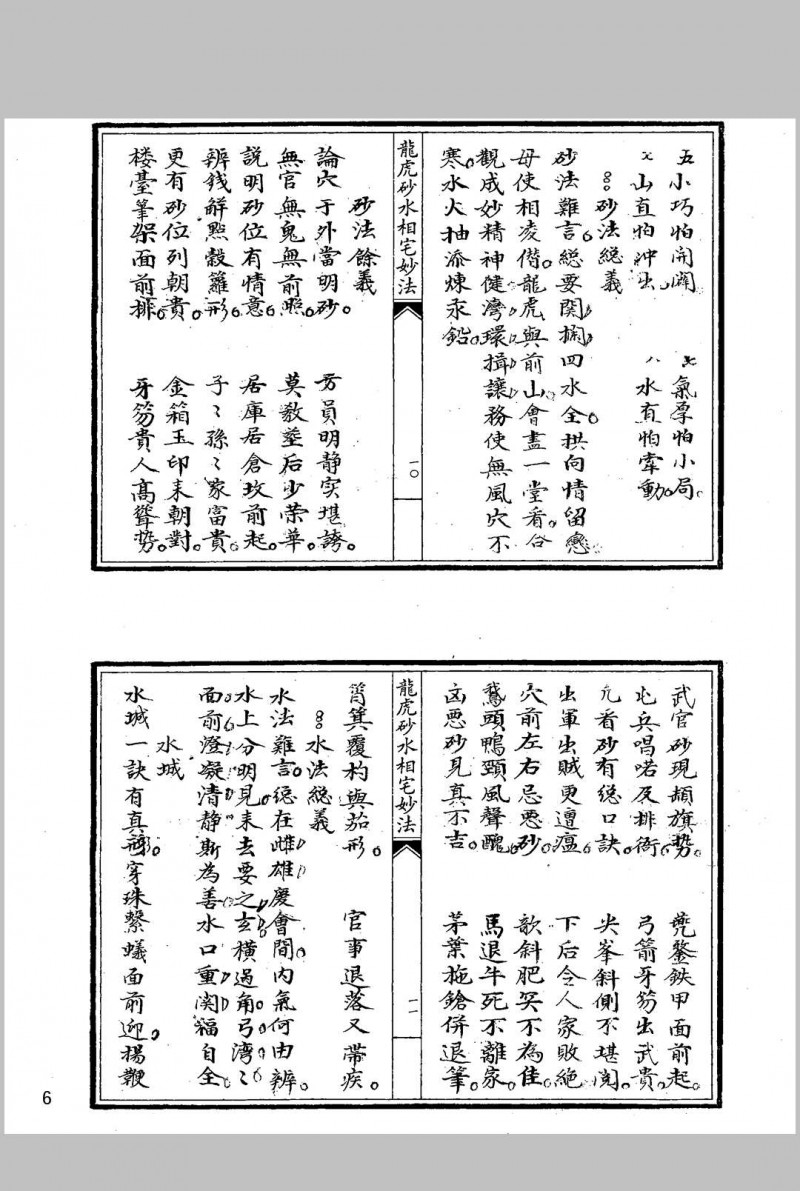 五小巧怕開濶　七氣厚怕小局
六山直怕冲出　八水直怕牽動
砂法緫義
砂法難言緫要関搁四水全拱向情留戀
母使相凌僭龍虎與前山會盡一堂看谷
觀成妙精神健灣環揖讓務使無風穴不
寒水火抽添煉汞鉛
龍虎砂水相宅妙法
一〇
砂法餘義
論穴于外當明砂　方員明静实堪誇
無官無鬼無前照　莫教塟后少荣華
說明砂位有情意　居庫居倉攻前起
辨錢觧㸃穀籮形　子〻孫〻家富貴
更有砂位列朝貴　金箱玉印耒朝對
楼臺筆架面前排　牙笏貴人髙聳势
武官砂現頓旗势　兠鍪鉄甲面前起
屯兵唱喏及排衙　弓箭牙笏出武貴
凢看砂有緫口訣　尖峯斜側不堪閲
出軍出賊更遭瘟　下后令人家敗絶
穴前左右忌悪砂　歆斜肥哭不為佳
鵞頭鴨頸風聲醜　馬退牛死不離家
凶悪砂見真不吉　茅葉拖鎗併退筆
龍虎砂水相宅妙法
一一
筲箕覆杓與茄形　官事退落又帶疾
水法緫義
水法難言緫在雌雄慶會間内氣何由辨
水上分明見耒去要之玄橫過角弓湾〻
面前澄凝清静斯為善水口重関福自全
水城
水城一訣有真神穿珠繫蟻面前迎揚鞭
6